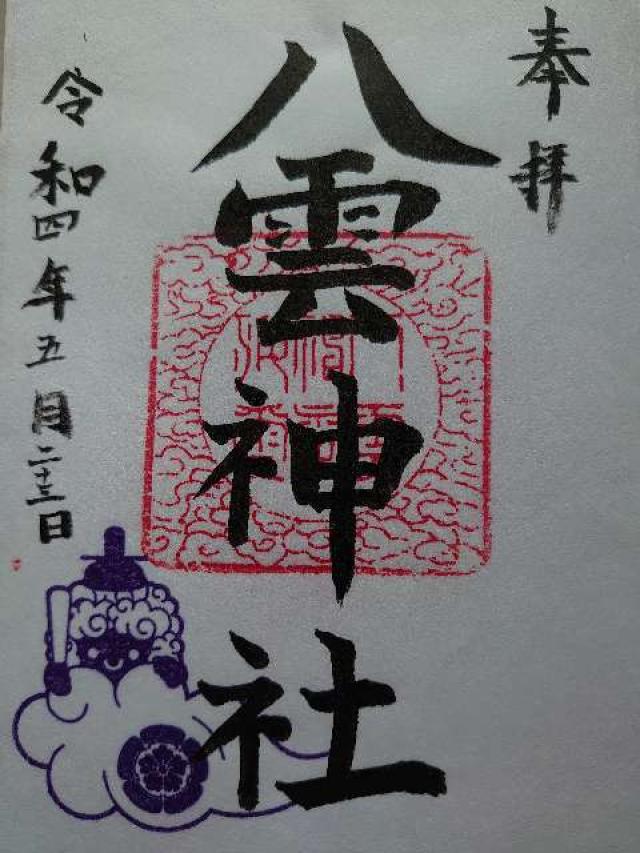 奉拝
八雲神社
令和四年五月二十三日